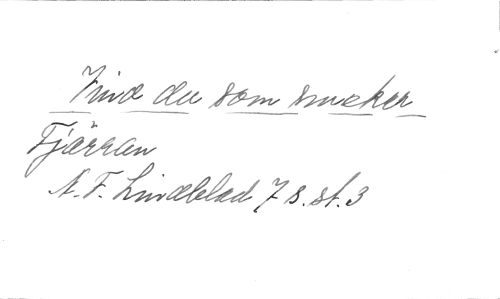 Vind du som smeker
Fjärran
A. F. Lindblad 7 s. st. 3